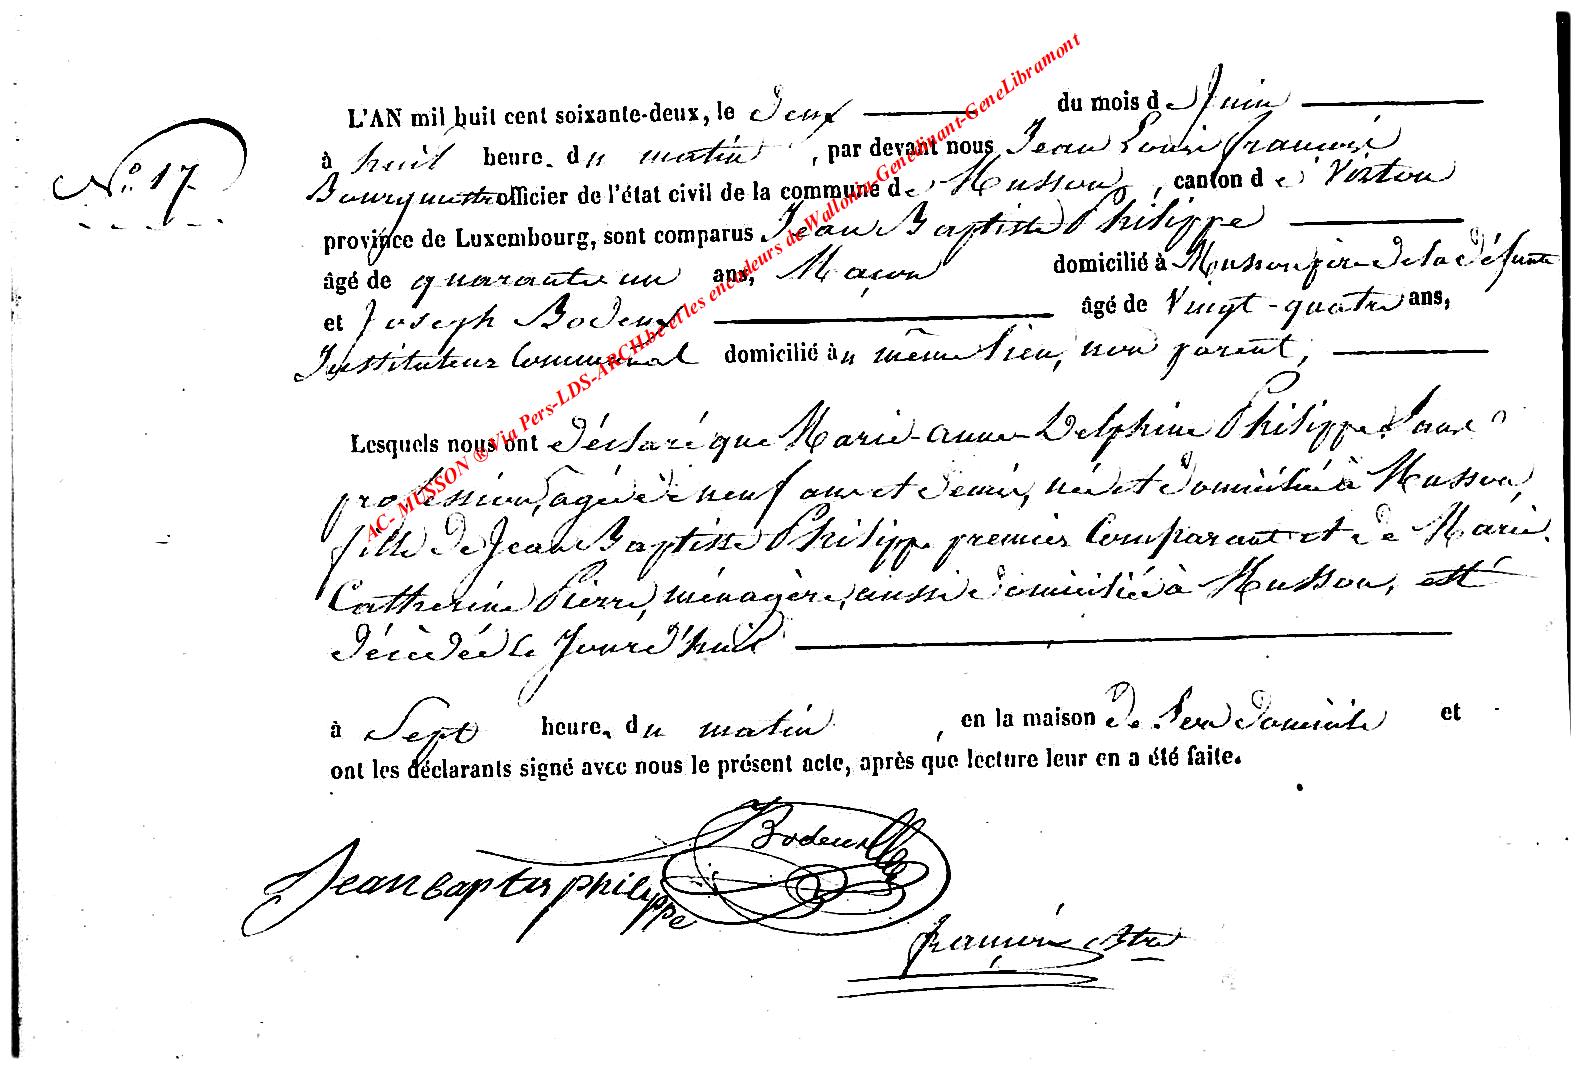 N° 17
L'AN mil huit cent soixante-deux, le deux du mois de Juin
à huit heure. du matin, par devant nous Jean Louis françois
Bourgmestre officier de l'état civil de la commune de Musson, canton de Virton
province de Luxembourg, sont comparus Jean Baptiste Philippe
âgé de quarante un ans, Maçon domicilié à Musson père de la défunte
et Joseph Bodeux âgé de Vingt-quatre ans,
Instituteur Communal domicilié au même lieu, non parent,
Lesquels nous ont déclaré que Marie-anne-Delphine Philippe sans
profession, agée de neuf ans et demi, née et domiciliée à Musson,
fille de Jean Baptiste Philippe premier Comparant et de Marie
Catherine Pierre, ménagère, aussi domiciliée à Musson, est
décédée le Jourd'hui
à Sept heure. du matin, en la maison de son domicile et
ont les déclarants signé avec nous le présent acte, après que lecture leur en a été faite.
Bodeux
Jean baptis philippe
françois Btre
AC- MUSSON ® Via Pers-LDS-ARCH.be et les encodeurs de Wallonia-Genedinant-GeneLibramont